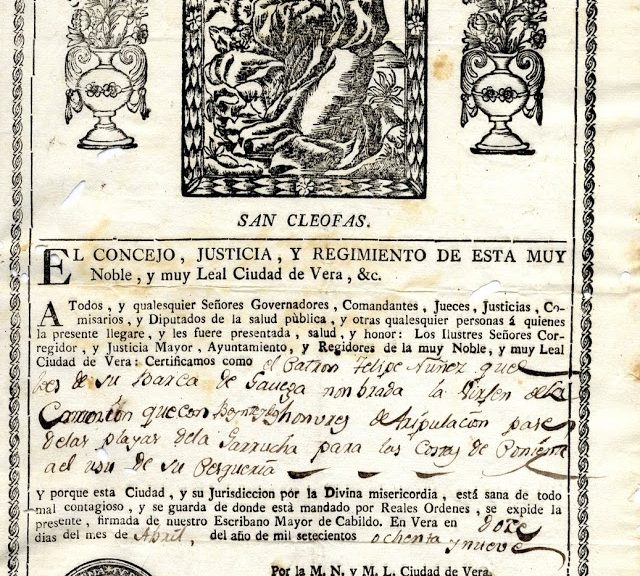 SAN CLEOFAS.
EL CONCEJO, JUSTICIA, Y REGIMIENTO DE ESTA MUY
Noble, y muy Leal Ciudad de Vera, &c.
A Todos, y qualesquier Señores Governadores, Comandantes, Jueces, Justicias, Co-
misarios, y Diputados de la salud pùblica, y otras qualesquier personas á quienes
la presente llegare, y les fuere presentada, salud, y honor: Los Ilustres Señores Cor-
regidor, y Justicia Mayor, Ayuntamiento, y Regidores de la muy Noble, y muy Leal
Ciudad de Vera: Certificamos como el Patron Felipe Nuñez que
es de su Barca de nonbrada la Virsen de la
que con honvres de tripulacion pase
delas playas dela Garrucha para las Costas de Poniente
a el uso de su Pesqueria
Y porque esta Ciudad, y su Jurisdiccion por la Divina misericordia, está sana de todo
mal contagioso, y se guarda de donde está mandado por Reales Ordenes, se expide la
presente, firmada de nuestro Escribano Mayor de Cabildo. En Vera en doze
dias del mes de Abril, del año de mil setecientos ochenta y nueve
Por la M. N. y M. L. Ciudad de Vera.